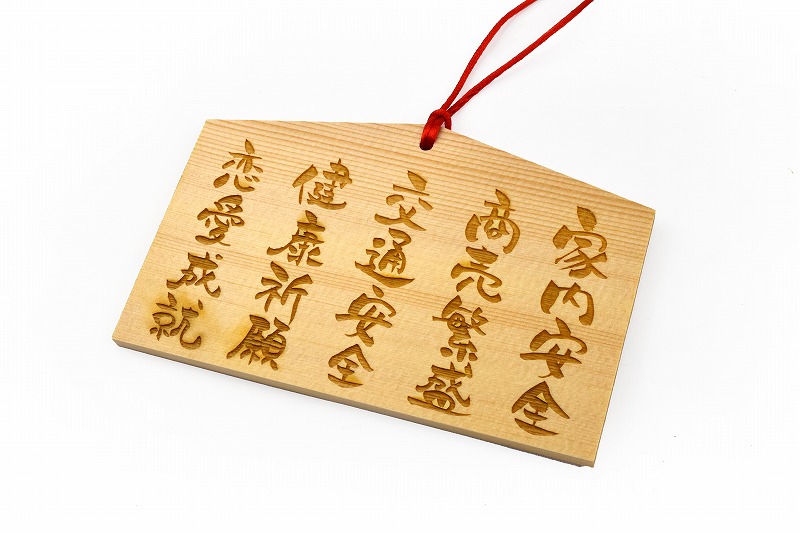 家内安全
商売繁盛
交通安全
健康祈願
恋愛成就